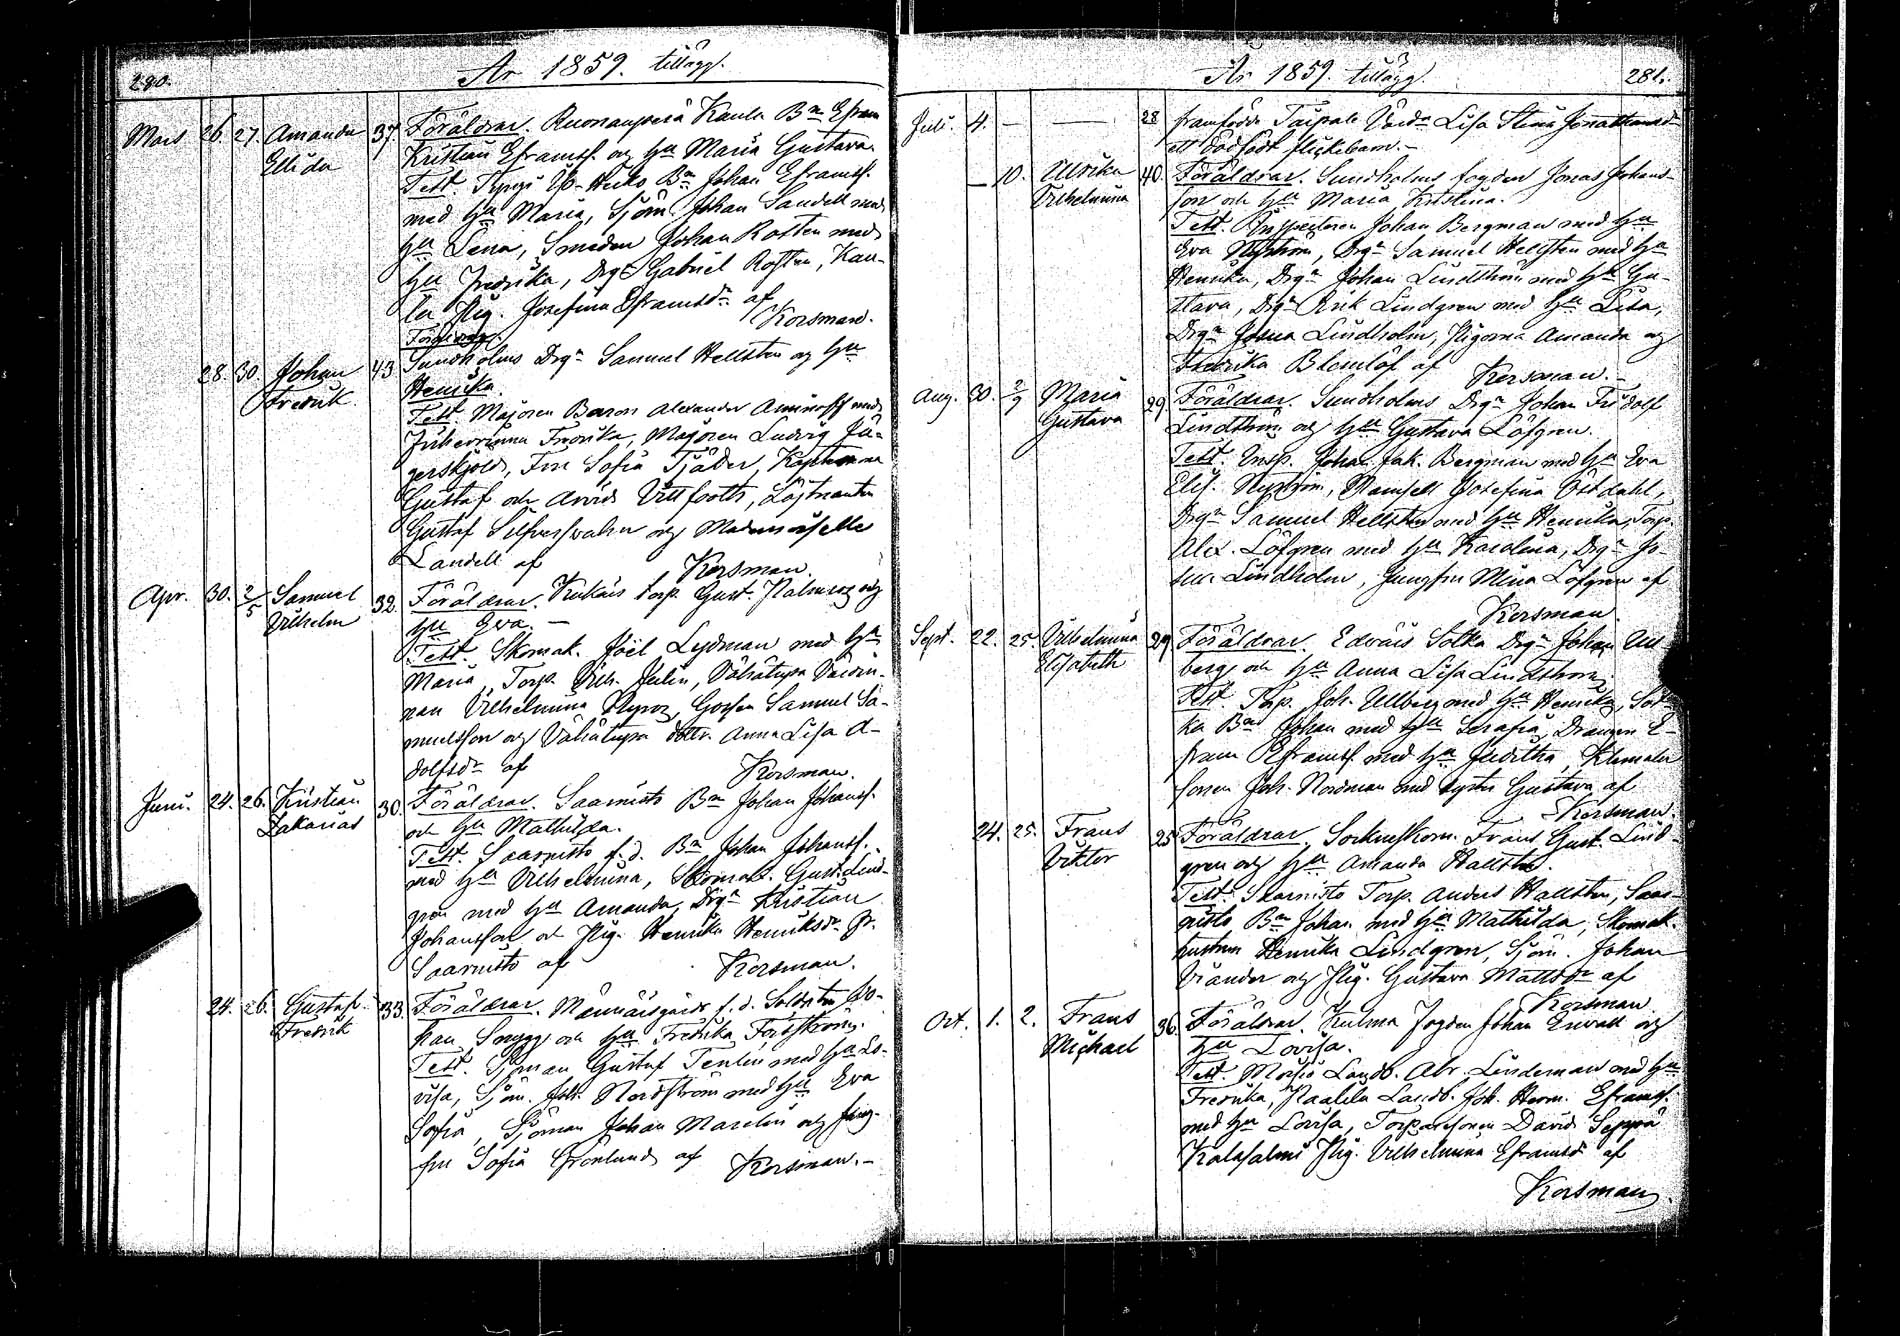 280.
År 1859. tillägg.
Mars 26. 27. Amanda Ellida 37. Föräldrar. Ruonanperä Kaula Bn Efram
Kristian Eframss. och hu Maria Gustava.
Test. Up-Heiko Bn Johan Eframss.
med hu Maria, Sjöm. Johan Sandell med
hu Lena, Smeden Johan Rosten med
hu Fredrika, Drgn Gabriel Rosten, Kau-
la Pig. Josefina Eframsdr af
Korsman.
Föräldrar.
28. 30. Johan Fredrik. 43. Sundholms Drgn Samuel Hellsten och hu
Henrika.
Test. Majoren Baron Alexander Aminoff med
Friherrinna Fredrika, Majoren Ludvig Jä-
gerskjöld, Fru Sofia Tjäder,
Gustaf och Arvid Villfooth, Löjtnanten
Gustaf Silfversvahn och Mademoiselle
Landell af Korsman.
Apr. 30. 2/5 Samuel Vilhelm 32. Föräldrar. torp. Gust. Palmros och
hu Eva. –
Test. Skomak. Joël Lydman med hu
Maria, Torp. Vilh. Julin, Vähätupa Värdin-
nan Vilhelmina Nyroos, Gossen Samuel Sa-
muelsson och Vähätupa dottr. Anna Lisa A-
dolfsdr af Korsman.
Juni. 24. 26. Kristian Zakarias 30. Föräldrar. Saarnisto Bn Johan Johanss.
och hu Mathilda.
Test. Saarnisto f.d. Bn Johan Johanss.
med hu Vilhelmina, Skomak. Gust. Lind-
gren med hu Amanda, Drgn Kristian
Johansson och Pig. Henrika Henriksdr fr.
Saarnisto af Korsman.
24. 26. Gustaf Fredrik 33. Föräldrar. f.d. Soldaten Jo-
han Snygg och hu Fredrika Forsström.
Test. Sjöman Gustaf Tenlin med hu Lo-
visa, Sjöm. Joh. Nordström med hu Eva
Sofia, Sjöman Johan Marelin och Jung-
fru Sofia Grönlund af Korsman. –
År 1859. tillägg.
281.
Juli. 4. – — 28 framfödde Taipale Värdn Lisa Stina Jonathansdr
ett dödfödt flickebarn. –
– 10. Ulrika Vilhelmina 40. Föräldrar. Sundholms fogden Jonas Johans-
son och hu Maria Kristina.
Test. Inspectoren Johan Bergman med hu
Eva Nyström, Drgn Samuel Hellsten med hu
Henrika, Drgn Johan Lindström med hu Gu-
stava, Drgn Erik Lindgren med hu Lisa,
Drgn Josua Lindholm, Pigorna Amanda och
Fredrika Blomlöf af Korsman. –
Aug. 30. 2/9 Maria Gustava 29. Föräldrar. Sundholms Drgn Johan Fridolf
Lindström och hu Gustava Löfgren.
Test. Insp. Johan Jak. Bergman med hu Eva
Elis. Nyström, Mamsell Josefina Östdahl,
Drgn Samuel Hellsten med hu Henrika, Torp.
Alex. Löfgren med hu Karolina, Drgn Jo-
sua Lindholm, Jungfru Mina Löfgren af
Korsman
Sept. 22. 25. Vilhelmina Elisabeth 29 Föräldrar. Edväis Sotka Drgn Johan Ull-
berg och hu Anna Lisa Lindström.
Test. Torp. Joh. Ullberg med hu Henrika, Sot-
ka Bn Johan med hu Serafia, Drängen E-
fraim Eframss. med hu Juditha,
sonen Joh. Nordman med syster Gustava af
Korsman.
24. 25. Frans Viktor 25 Föräldrar. Sockneskom. Frans Gust. Lind-
gren och hu Amanda Hallsten.
Test. Saarnisto Torp. Anders Hallsten, Saar-
nisto Bn Johan med hu Mathilda, Skomak.
hustrun Henrika Lindgren, Sjöm. Johan
Viander och Pig. Gustava Mattsdr af
Korsman
Oct. 1. 2. Frans Michael 36. Föräldrar. Kulma fogden Johan Envall och
hu Lovisa.
Test. Landb. Abr. Lindeman med hu
Fredrika, Landb. Joh. Herm. Eframss.
med hu Lovisa, Torparesonen David Seppä
Kalasalmi Pig. Vilhelmina Eframsdr af
Korsman.